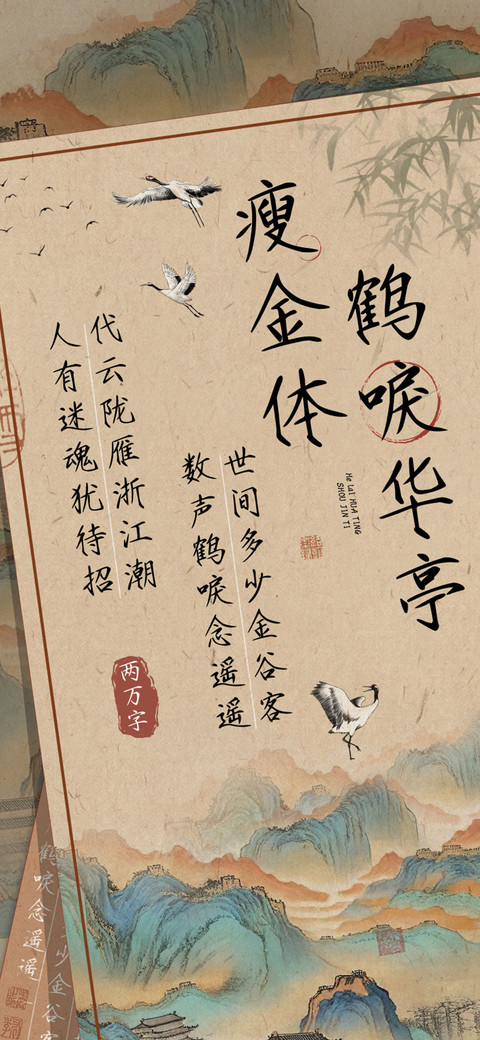 鹤唳华亭
瘦金体
He Lai HUA TING
SHOU JIN TI
世间多少金谷客
数声鹤唳念遥遥
代云陇雁浙江潮
人有迷魂犹待招
两万字
少金谷客
鹤唳念遥遥